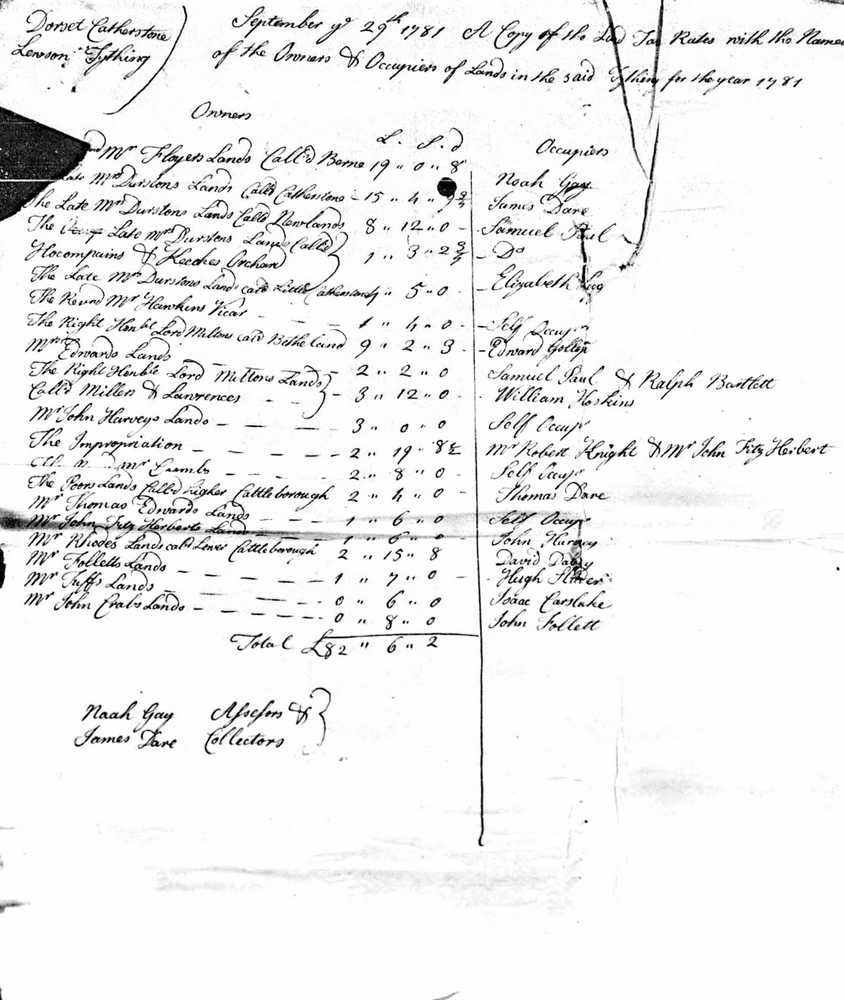 Dorset Catherstone
Lewson Tything
September ye 29th 1781 A Copy of the Land Tax Rates with the Names
of the Owners & Occupiers of Lands in the said Tything for the year 1781
Owners L. S. d Occupiers
Mr Floyers Lands Call'd Berne 19 " 0 " 8 Noah Gay
Late Mrs Durstons Lands Call'd Catherstone - 15 " 4 " 9 3/4 James Dare
The Late Mrs Durstons Lands Call'd Newlands 8 " 12 " 0 - Samuel Paul
The Late Mrs Durstons Lands Call'd
Hocompains & Keeches Orchard } 1 " 3 " 2 3/4 - Do
The Late Mrs Durstons Lands call'd Little Catherstone 4 " 5 " 0 - Elizabeth
The Revnd Mr Hawkins Vicar - - - 1 " 4 " 0 - Self Occupr
The Right Honbl Lord Miltons call'd Bethe Land 9 " 2 " 3 - Edward Gollop
Mrs Edwards Lands - - - 2 " 2 " 0 Samuel Paul & Ralph Bartlett
The Right Honble Lord Miltons Lands
Call'd Millers & Lawrences - - } 3 " 12 " 0 - William Hoskins
Mr John Harveys Lands - - - - 3 " 0 " 0 Self Occupr
The Impropriation - - - - 2 " 19 " 8 1/2 Mr Robert Knight & Mr John Fitz Herbert
Mr Crumbs - - - - 2 " 8 " 0 Self Occupr
The Poors Lands Call'd higher Cattleborough 2 " 4 " 0 - Thomas Dare
Mr Thomas Edwards Lands - - - 1 " 6 " 0 Self Occupr
Mr John Fitz Herberts Land - - - 1 " 6 " 0 - John Harvey
Mr Rhodes Lands call'd Lower Cattleborough 2 " 15 " 8 David
Mr Folletts Lands - - - - 1 " 7 " 0 - Hugh
Mr Tuffs Lands - - - - 0 " 6 " 0 Isaac Carslake
Mr John Crabs Lands - - - - 0 " 8 " 0 John Follett
Total £82 " 6 " 2
Noah Gay Assesors & }
James Dare Collectors